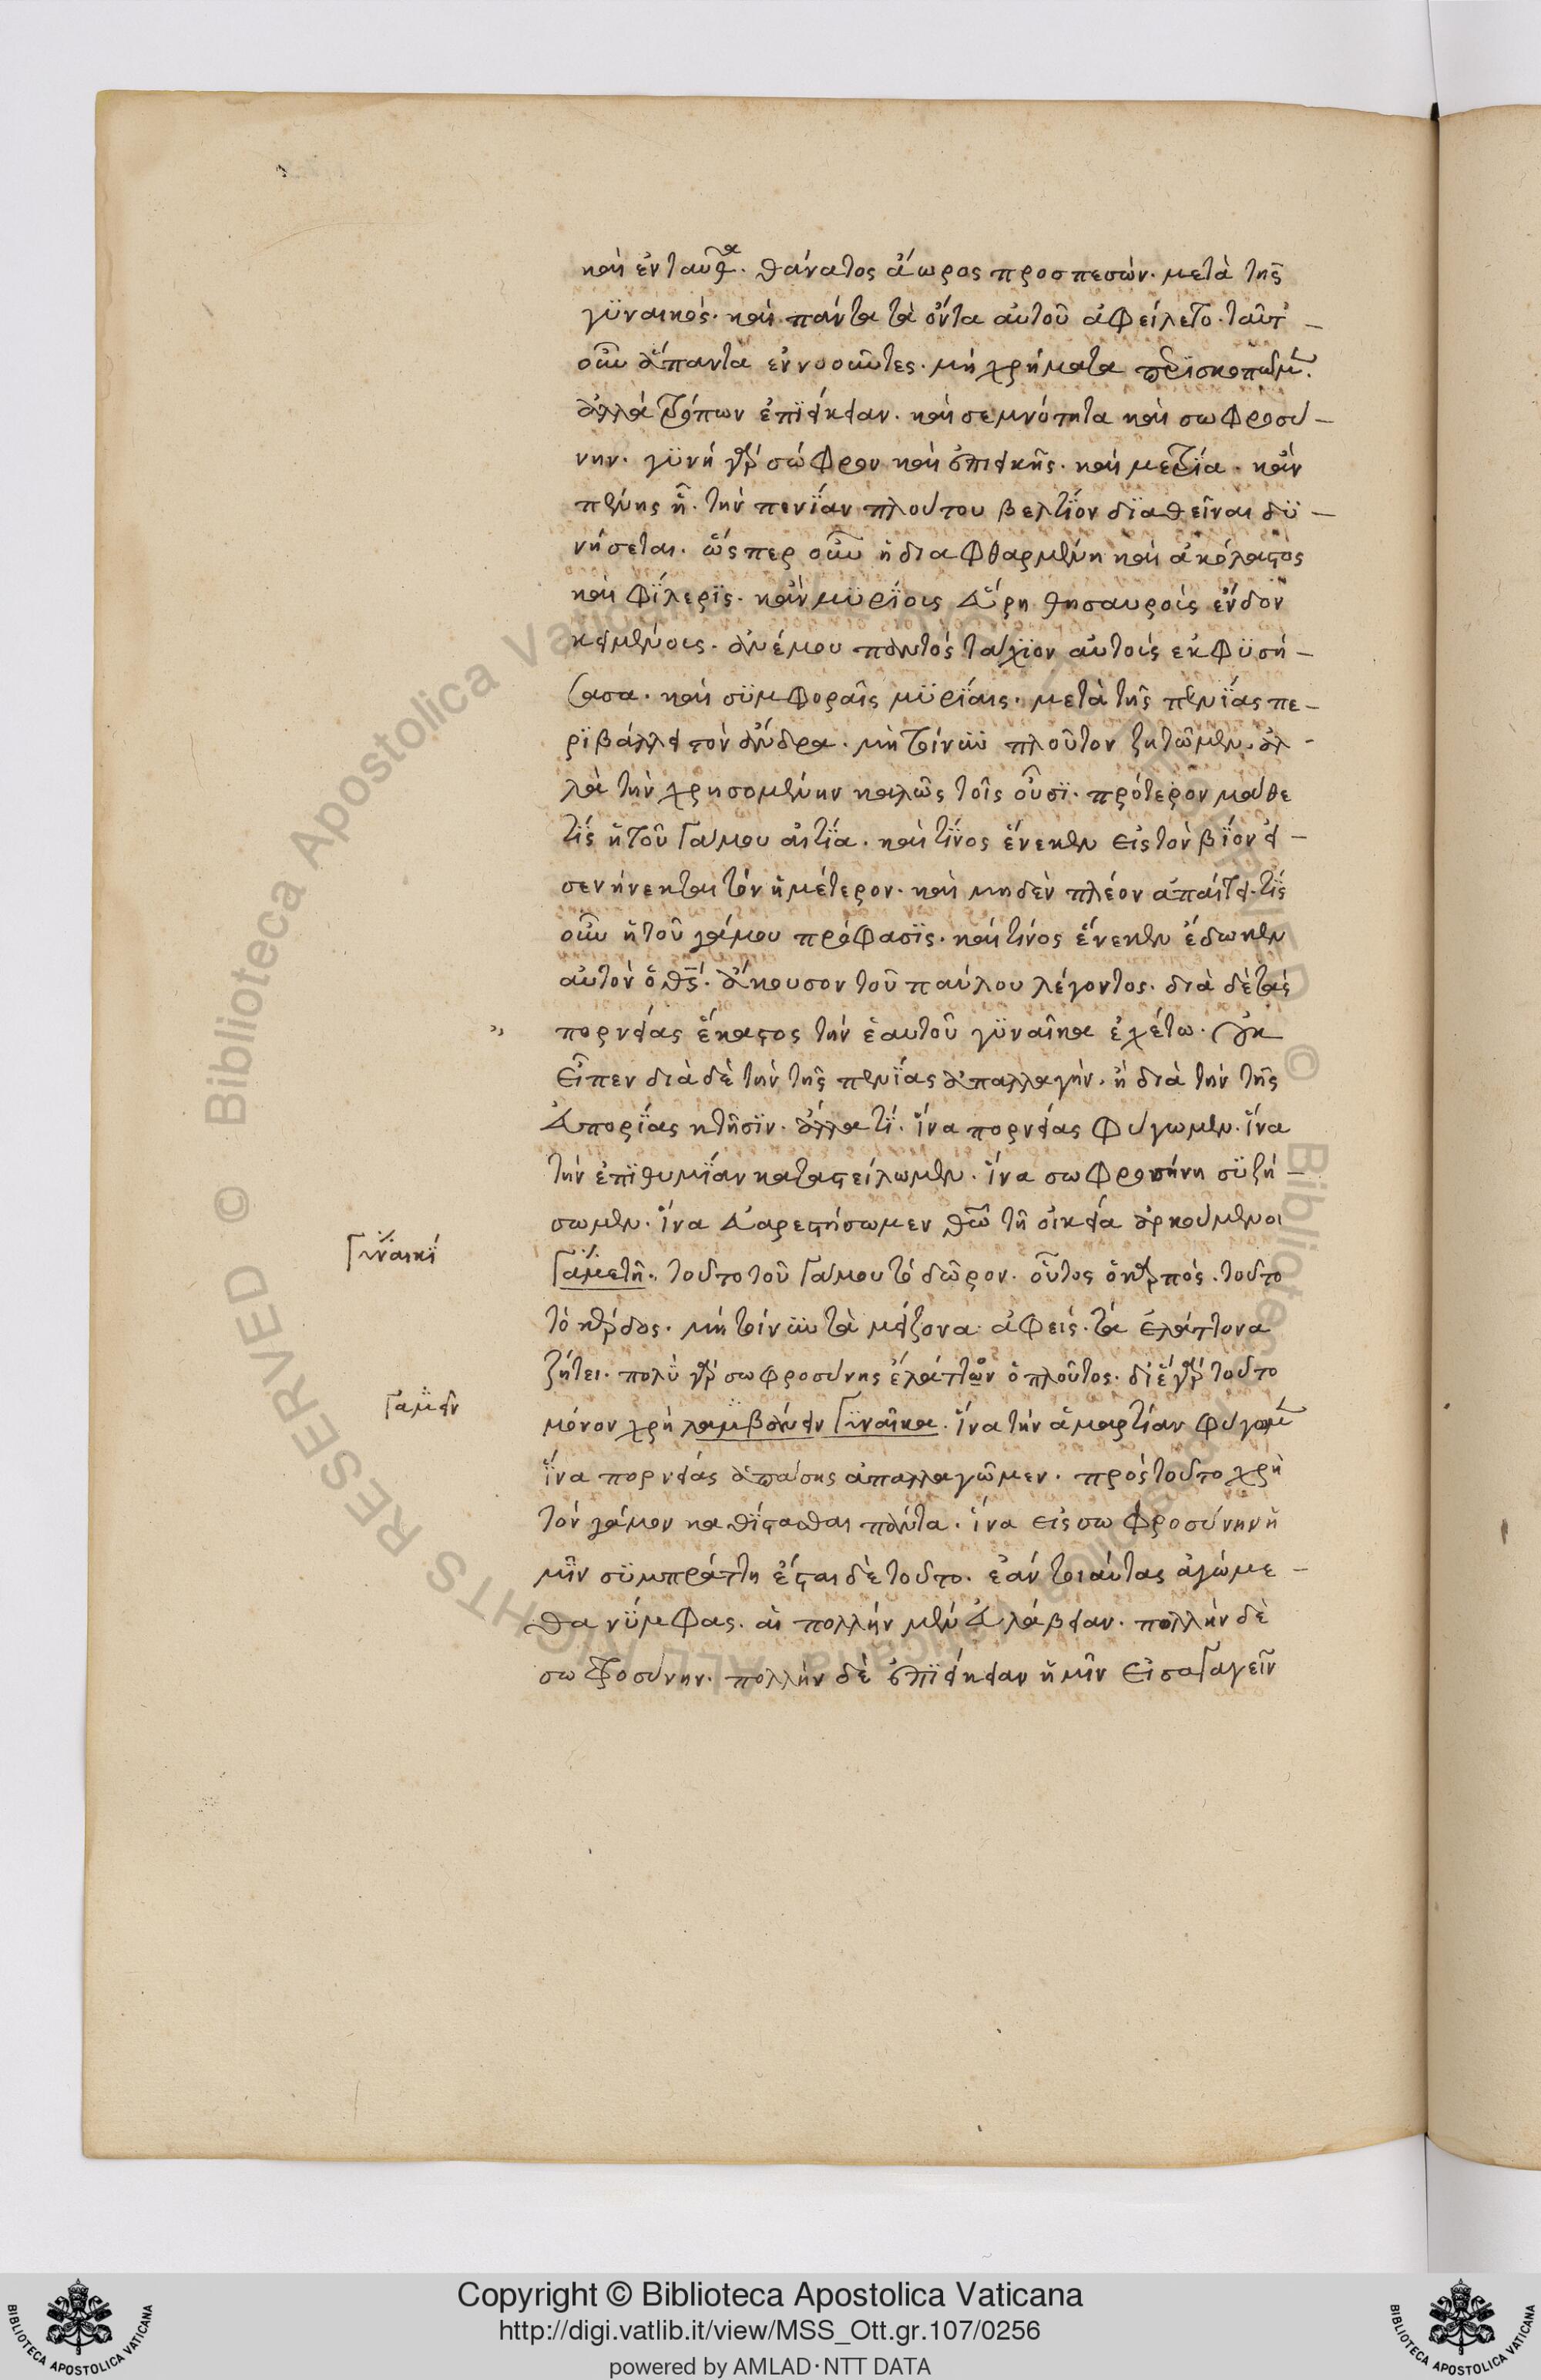 καὶ ἐνταῦθα. θάνατος ἄωρος προσπεσών. μετὰ τῆς
γϋναικός. καὶ πάντα τὰ ὄντα αὐτοῦ ἀφείλετο. ταῦτ' –
οὖν ἅπαντα ἐννοοῦντες. μὴ χρήματα περϊσκοπῶμεν.
ἀλλὰ τρόπων ἐπϊείκειαν. καὶ σεμνότητα καὶ σωφροσύ –
νην. γϋνὴ γὰρ σώφρον καὶ ἐπιεικὴς. καὶ μετρία. κἂν
πένης ἦ. τὴν πενΐαν πλούτου βελτϊον δϊαθεῖναι δϋ –
νήσεται. ὥς περ οὖν ἡ διαφθαρμένη καὶ ἀκόλαστος
καὶ φΐλερϊς. κἂν μϋρΐοις εὕρη θησαυροὺς ἔνδον
κειμένους. ἀνέμου παντός τάχϊον αὐτοὺς ἐκφϋσή –
σασα. καὶ σϋμφοραῖς μϋρΐαις. μετὰ τῆς πενΐας πε –
ρϊβάλλει τὸν ἄνδρα. μὴ τοίνυν πλοῦτον ζητῶμεν. ἀλ –
λὰ τὴν χρησομένην καλῶς τοῖς οὖσϊ. πρότερον μάθε
τΐς ἡ τοῦ Γάμου αἰτΐα. καὶ τΐνος ἕνεκεν εἰς τὸν βΐον εἰ –
σενήνεκται τὸν ἡμέτερον. καὶ μηδὲν πλέον ἀπαίτει. τΐς
οὖν ἡ τοῦ γάμου πρόφασϊς. καὶ τίνος ἕνεκεν ἔδωκεν
αὐτὸν ὁ θς. ἄκουσον τοῦ παύλου λέγοντος. διὰ δὲ τὰς
» πορνείας ἕκαστος τὴν ἑαυτοῦ γϋναῖκα ἐχέτω. οὐκ
εἶπεν διὰ δὲ τὴν τῆς πενΐας ἀπαλλαγὴν. ἢ διὰ τὴν τῆς
εὐπορΐας κτῆσϊν. ἀλλα τΐ. ἵνα πορνείας φύγωμεν. ἵνα
τὴν ἐπϊθυμΐαν καταστείλωμεν. ἵνα σωφροσήνη σϋζή –
σωμεν. ἵνα εὐαρεστήσωμεν θῶ τῆ οἰκεία ἀρκούμενοι
Γϋναικΐ
Γαμετῆ. τοῦτο τοῦ Γάμου τὸ δῶρον. οὗτος ὁ καρπός. τοῦτο
τὸ κέρδος. μὴ τοίνυν τὰ μείζονα ἀφεὶς. τὰ ἐλάττονα
ζήτει. πολὺ γὰρ σωφροσύνης ἐλάττων ὁ πλοῦτος. δι' ἓ γὰρ τοῦτο
Γαμεῖν
μόνον χρὴ λαμβάνειν Γϋναῖκα. ἵνα τὴν ἁμαρτίαν φύγωμεν
ἵνα πορνείας ἁπάσης ἀπαλλαγῶμεν. πρὸς τοῦτο χρὴ
τὸν γάμον καθΐστασθαι πάντα. ἵνα εἰς σωφροσύνην ἡ
μῖν σϋμπράττη ἔσται δὲ τοῦτο. ἐὰν τοιαύτας ἀγώμε –
θα νΰμφας. αἳ πολλὴν μὲν εὐλάβειαν. πολλὴν δὲ
σωφροσύνην. πολλὴν δὲ ἐπϊείκειαν ἡμῖν εἰσαΓαγεῖν
Copyright © Biblioteca Apostolica Vaticana
http://digi.vatlib.it/view/MSS_Ott.gr.107/0256
powered by AMLAD·NTT DATA